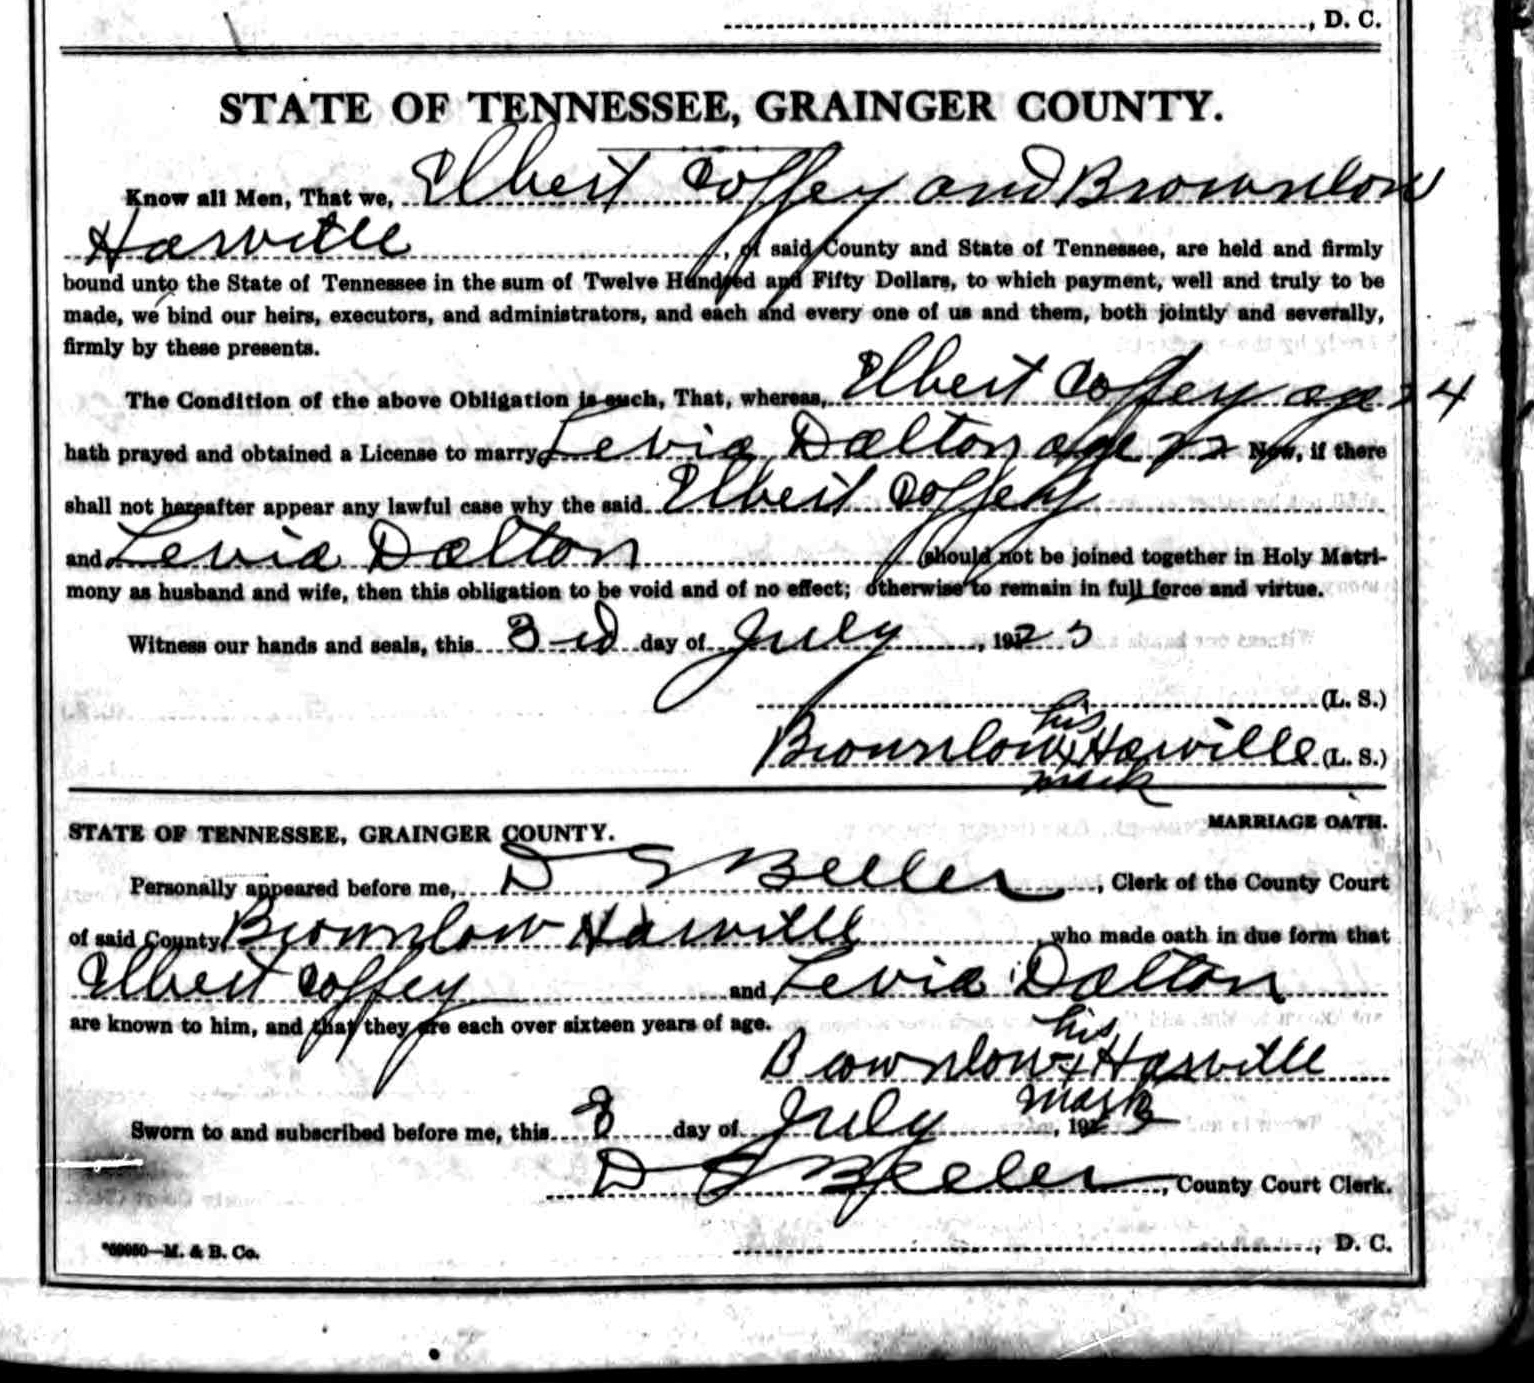 , D. C.
STATE OF TENNESSEE, GRAINGER COUNTY.
Know all Men, That we, Elbert Coffey and Brownlow
Harville, of said County and State of Tennessee, are held and firmly
bound unto the State of Tennessee in the sum of Twelve Hundred and Fifty Dollars, to which payment, well and truly to be
made, we bind our heirs, executors, and administrators, and each and every one of us and them, both jointly and severally,
firmly by these presents.
The Condition of the above Obligation is such, That, whereas, Elbert Coffey age 24
hath prayed and obtained a License to marry Levia Dalton age 22 Now, if there
shall not hereafter appear any lawful case why the said Elbert Coffey
and Levia Dalton should not be joined together in Holy Matri-
mony as husband and wife, then this obligation to be void and of no effect; otherwise to remain in full force and virtue.
Witness our hands and seals, this 3rd day of July, 1923
(L. S.)
his
Brownlow x Harville (L. S.)
mark
MARRIAGE OATH.
STATE OF TENNESSEE, GRAINGER COUNTY.
Personally appeared before me, D S Beeler, Clerk of the County Court
of said County Brownlow Harville who made oath in due form that
Elbert Coffey and Levia Dalton
are known to him, and that they are each over sixteen years of age.
his
Brownlow x Harville
mark
Sworn to and subscribed before me, this 3 day of July, 1923
D S Beeler, County Court Clerk.
M. & B. Co. , D. C.